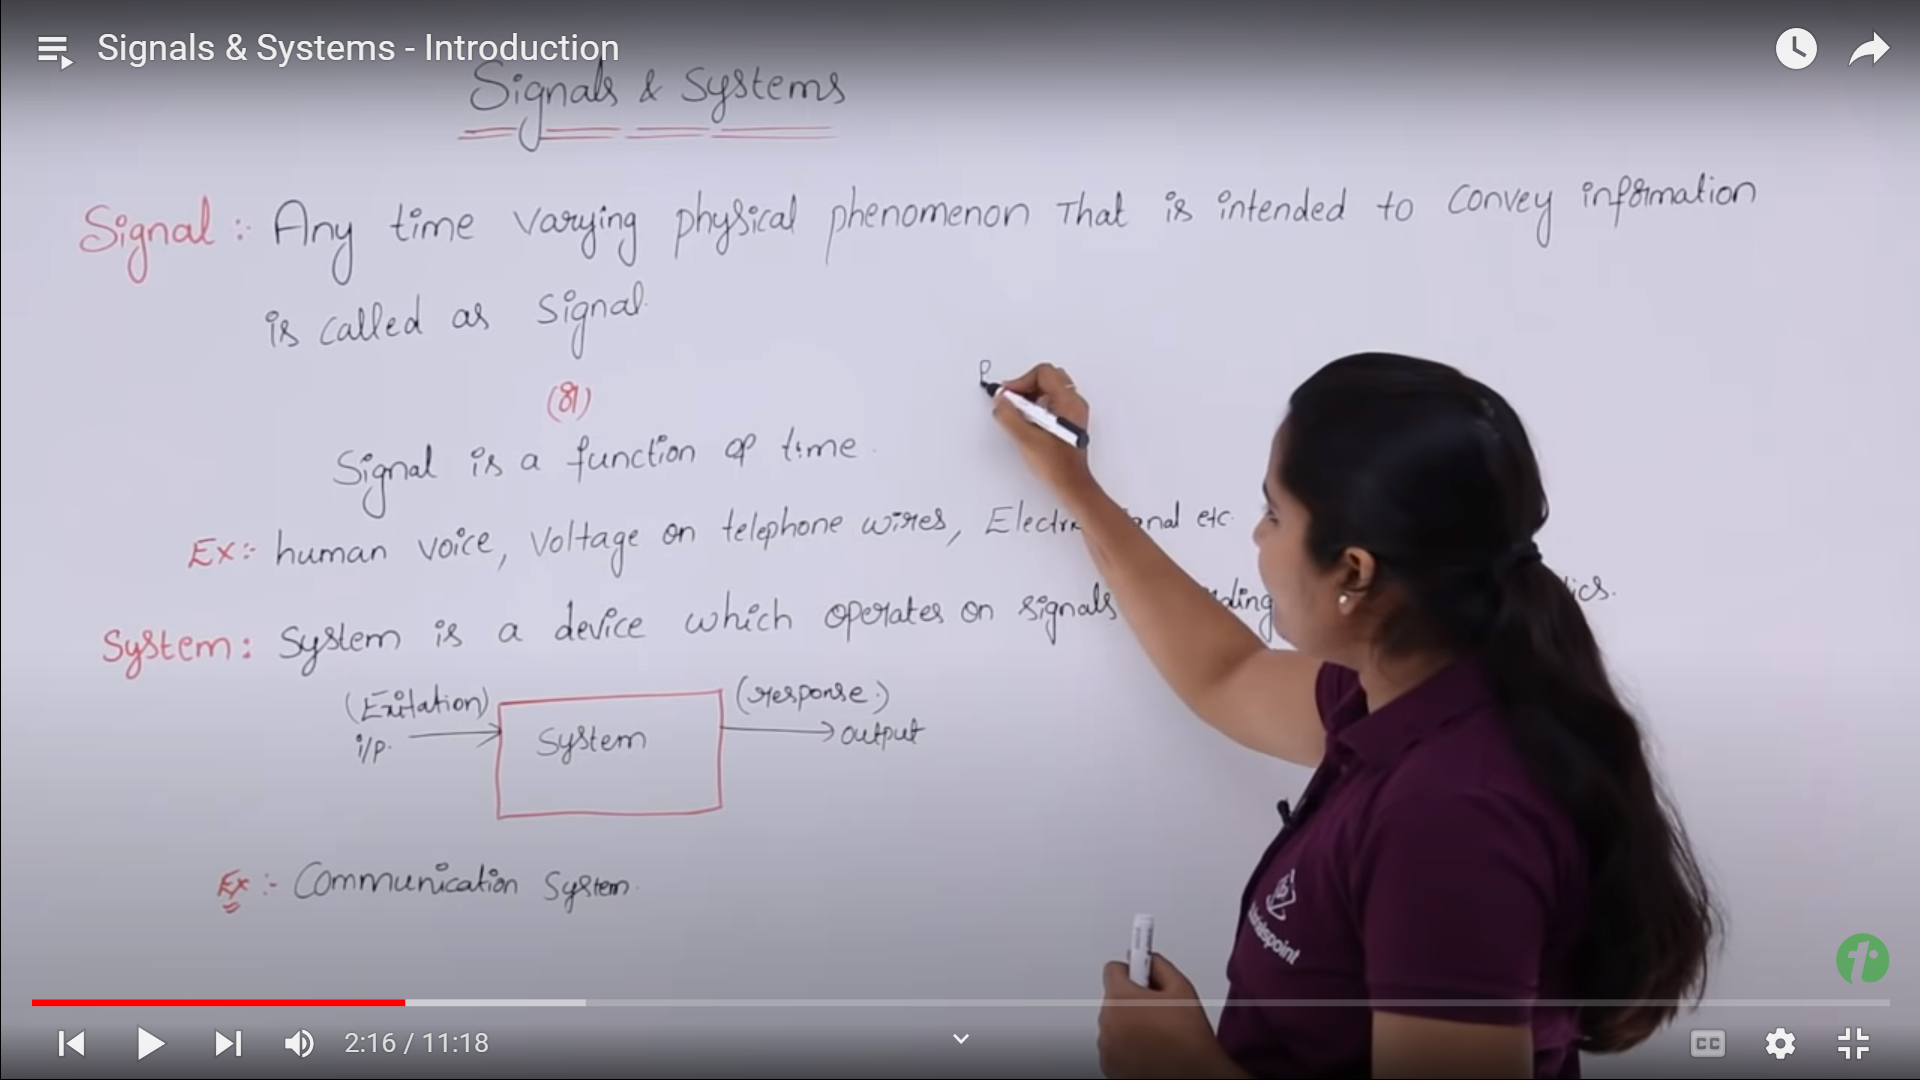 Signals & Systems - Introduction
Signals & Systems
Signal :- Any time varying physical phenomenon That is intended to convey information
is called as signal.
(or)
Signal is a function of time.
Ex:- human voice, voltage on telephone wires, etc.
System: System is a device which operates on signals
(Exitation)
i/p.
System
(response.)
output
Ex :- Communication System.
2:16 / 11:18
CC